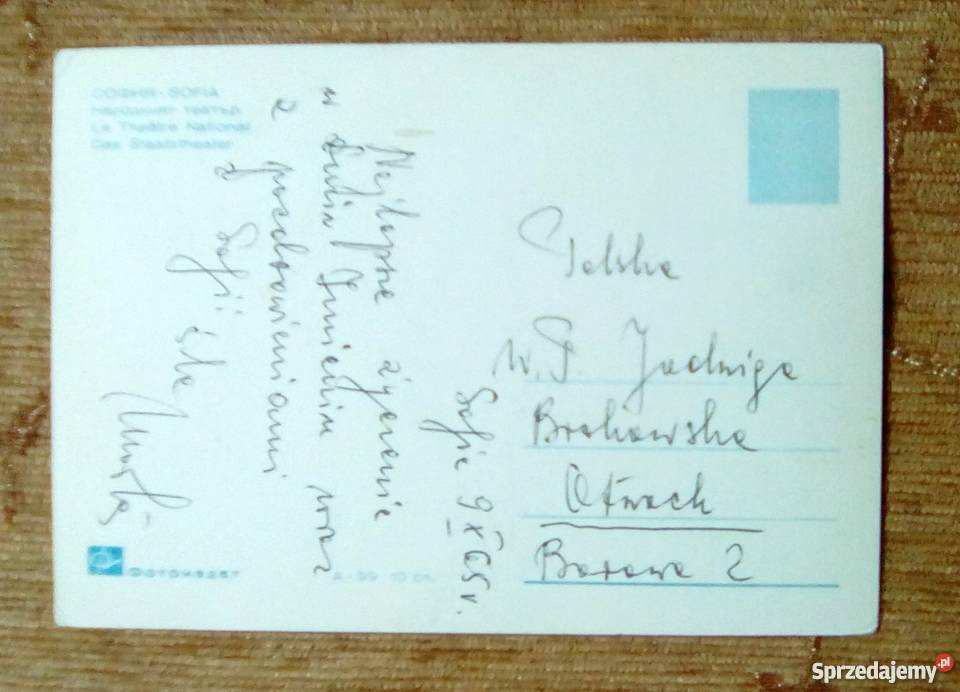 СОФИЯ - SOFIA
Народният театър
Le Théâtre National
Das Staatstheater
Sofia 9 X 65 r.
Najlepsze życzenia
w dniu Imienin wraz
z pozdrowieniami
z Sofii śle
Polska
W.P. Jadwiga
Brakowska
Otwock
Borowa 2
ФОТОИЗДАТ
А-99 10 ст.
Sprzedajemy.pl